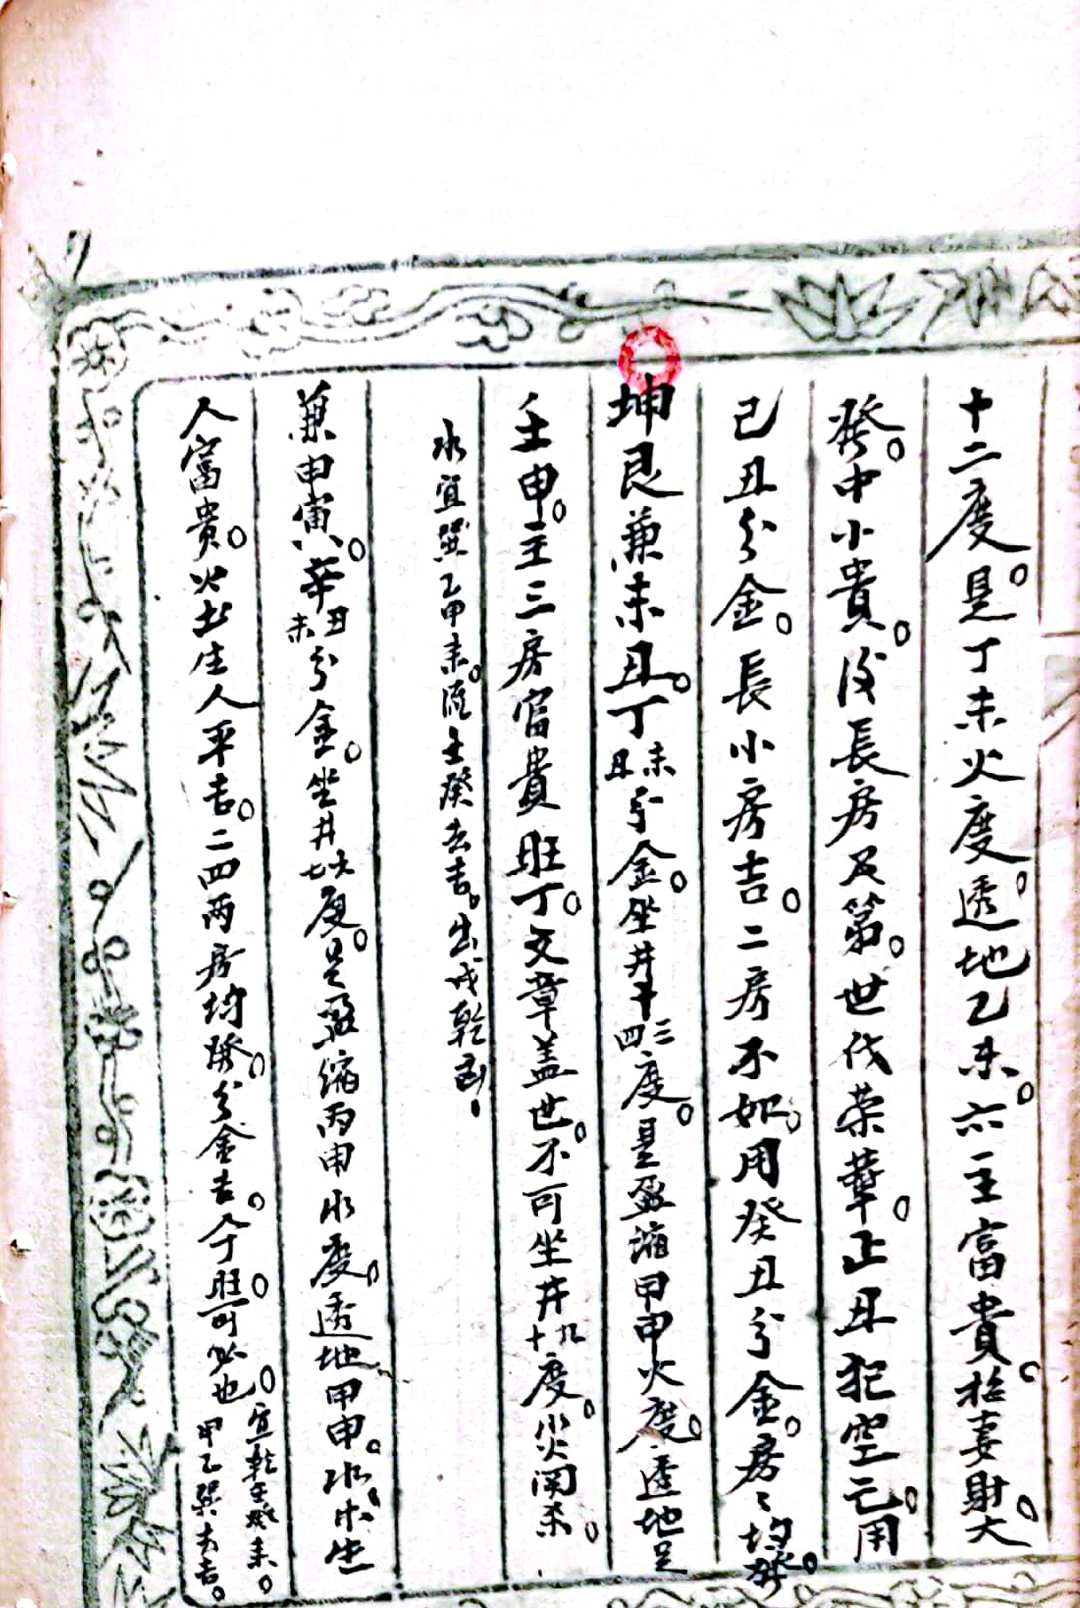 十二度。是丁未火度。透地乙未。六主富貴。招妻財大
發。中小貴。後長房及第。世代荣華。正丑犯空亡。用
己丑分金。長小房吉。二房不如。用癸丑分金。房〻均發。
坤艮兼未丑。丁未丑分金。坐井十三四度。是盈縮甲申火度。透地是
壬申。主三房富貴旺丁。文章盖世。不可坐井十九度。火災関杀。
水宜巽乙甲来。流壬癸去吉。出戌乾凶。
兼申寅。辛丑未分金。坐井度。是盈縮丙申水度。透地甲申。水木生
人富貴。火土生人平吉。二四兩房均發。分金吉。人丁旺可必也。宜乾壬癸来。甲乙巽去吉。